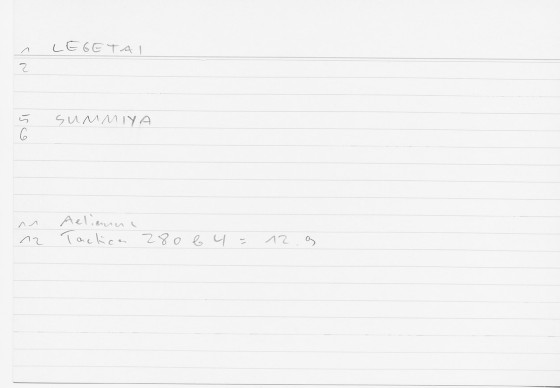 1 LEGETAI
2
5 SUMMIYA
6
11 Aelianus
12 Tactica 280 B 4 = 12.9